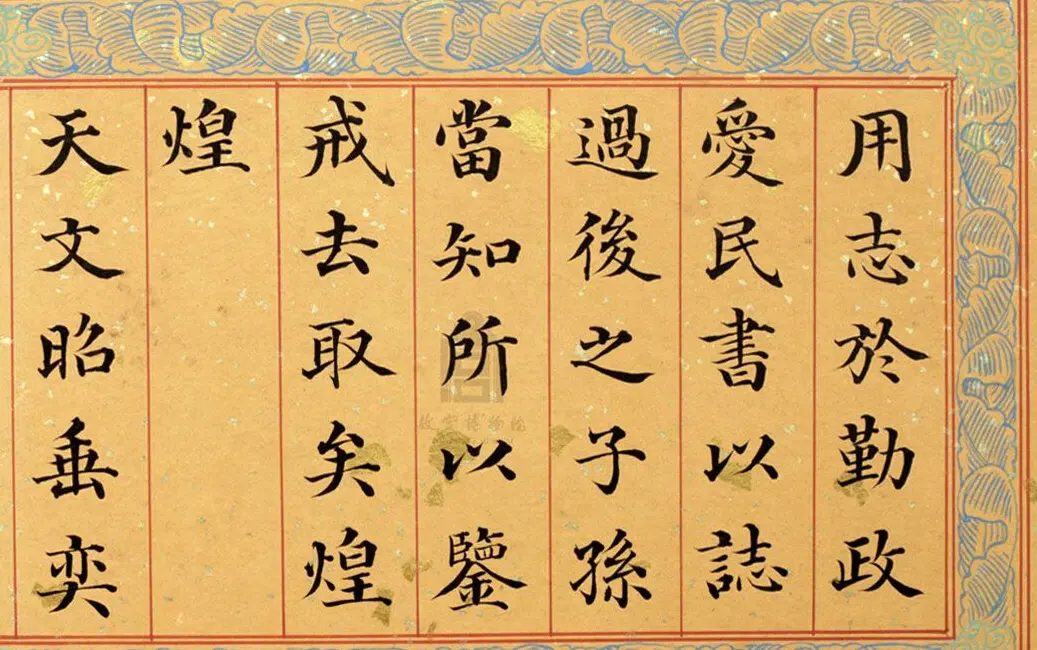 用志於勤政
愛民書以誌
過後之子孫
當知所以鑒
戒去取矣煌
煌
天文昭垂奕
故宫博物院